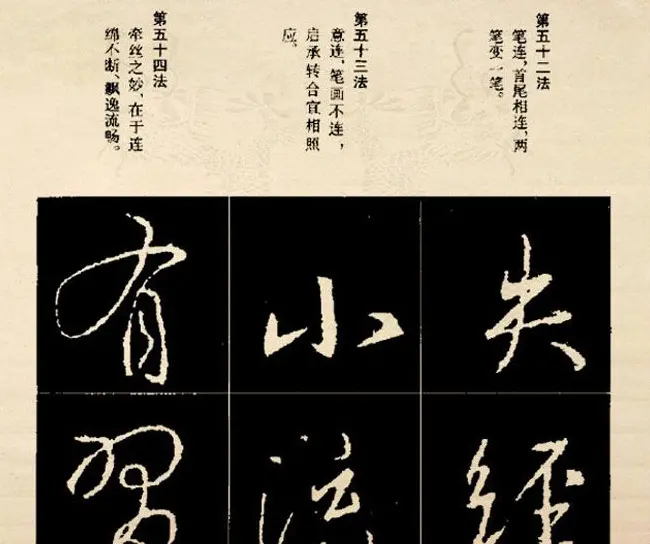 第五十二法
笔连，首尾相连，两
笔变一笔。
第五十三法
意连、笔画不连，
启承转合宜相照
应。
第五十四法
牵丝之妙，在于连
绵不断、飘逸流畅。
失
经
小
流
有